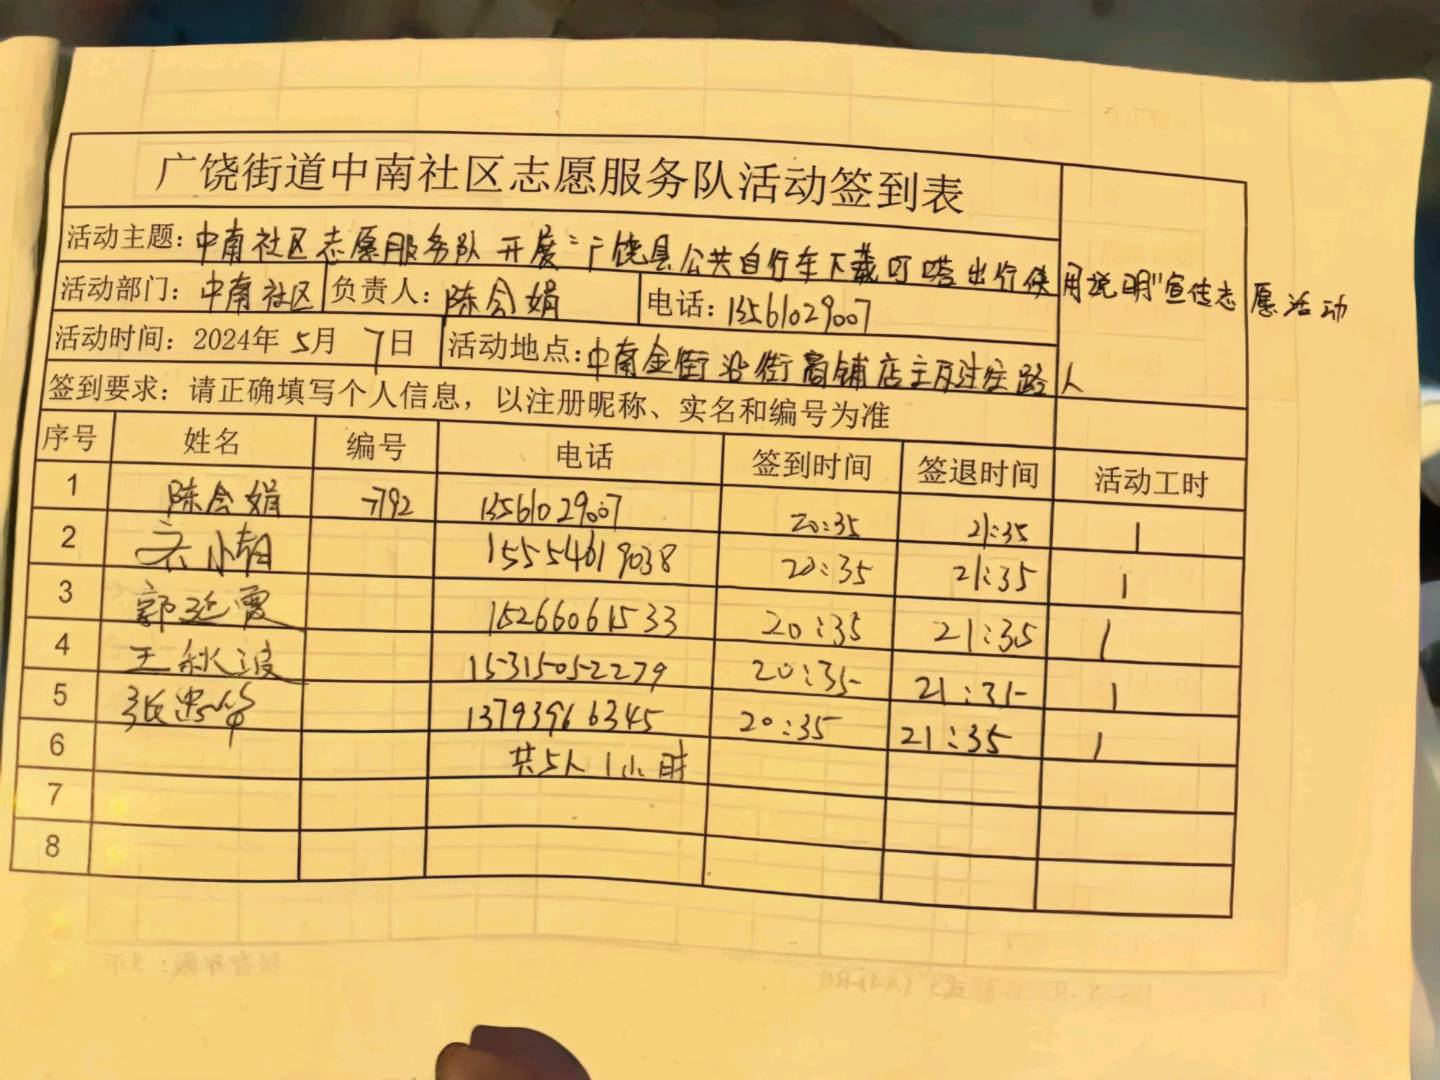 广饶街道中南社区志愿服务队活动签到表
活动主题：中南社区志愿服务队开展“广饶县公共自行车下载叮嗒出行使用说明”宣传志愿活动
活动部门：中南社区 负责人：陈会娟 电话：13561029007
活动时间：2024年5月7日 活动地点：中南金街沿街商铺店主及过往路人
签到要求：请正确填写个人信息，以注册昵称、实名和编号为准
序号 姓名 编号 电话 签到时间 签退时间 活动工时
1 陈会娟 -792 13561029007 20:35 21:35 1
2 15554619038 20:35 21:35 1
3 郭延霞 15266061533 20:35 21:35 1
4 王秋波 15315052279 20:35 21:35 1
5 张忠华 13793966345 20:35 21:35 1
6 共5人1小时
7
8